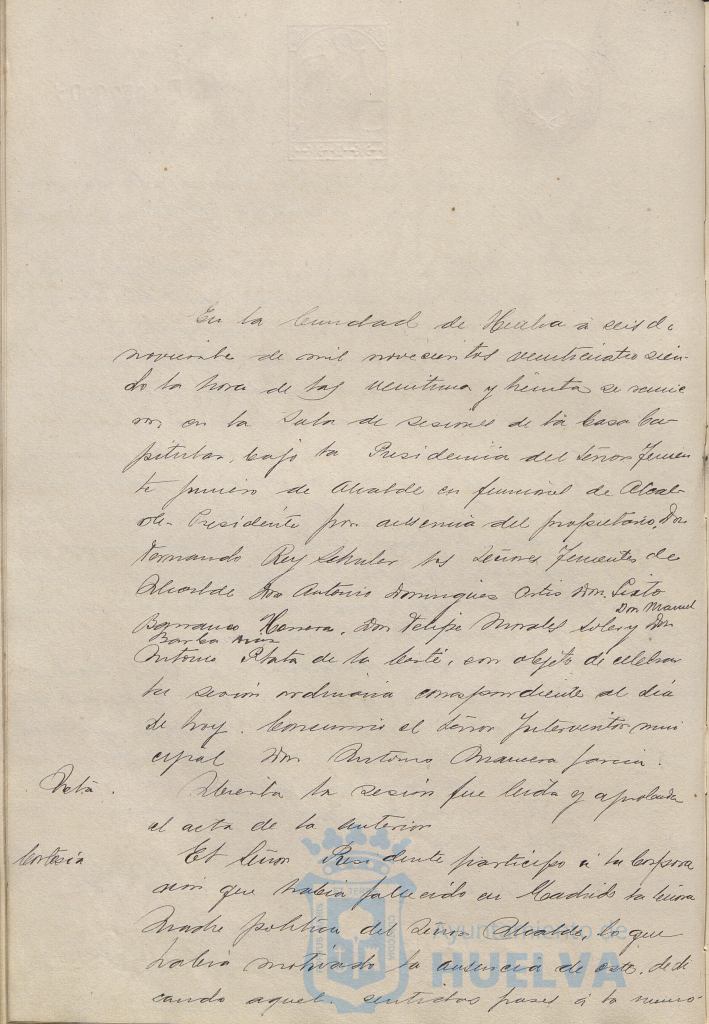 En la Ciudad de Huelva à seis de
noviembre de mil novecientos veinticuatro sien-
do la hora de las veintiuna y treinta se reunie
ron en la Sala de sesiones de la Casa Ca-
pitular, bajo la Presidencia del Señor Tenien
te primero de Alcalde en funciones de Alcal-
de-Presidente por ausencia del propietario, Don
Fernando Rey los Señores Tenientes de
Alcalde Don Antonio Dominguez Ortis Don Sixto
Don Manuel
Barranco Herrera, Don Felipe Morales Soler y Don
Barba
Antonio Plata de la Corte, con objeto de celebrar
la sesión ordinaria correspondiente al dia
de hoy. Concurrio el Señor Interventor muni
cipal Don Antonio Garcia.
Acta. Abierta la sesión fue leida y aprobada
el acta de la anterior
Cortesia El Señor Presidente participó à la Corpora
ción que habia fallecido en Madrid la Señora
Madre politica del Señor Alcalde, lo que
habia motivado la ausencia de este, dedi
cando aquel sentidas frases à la memo
Ayuntamiento de
HUELVA